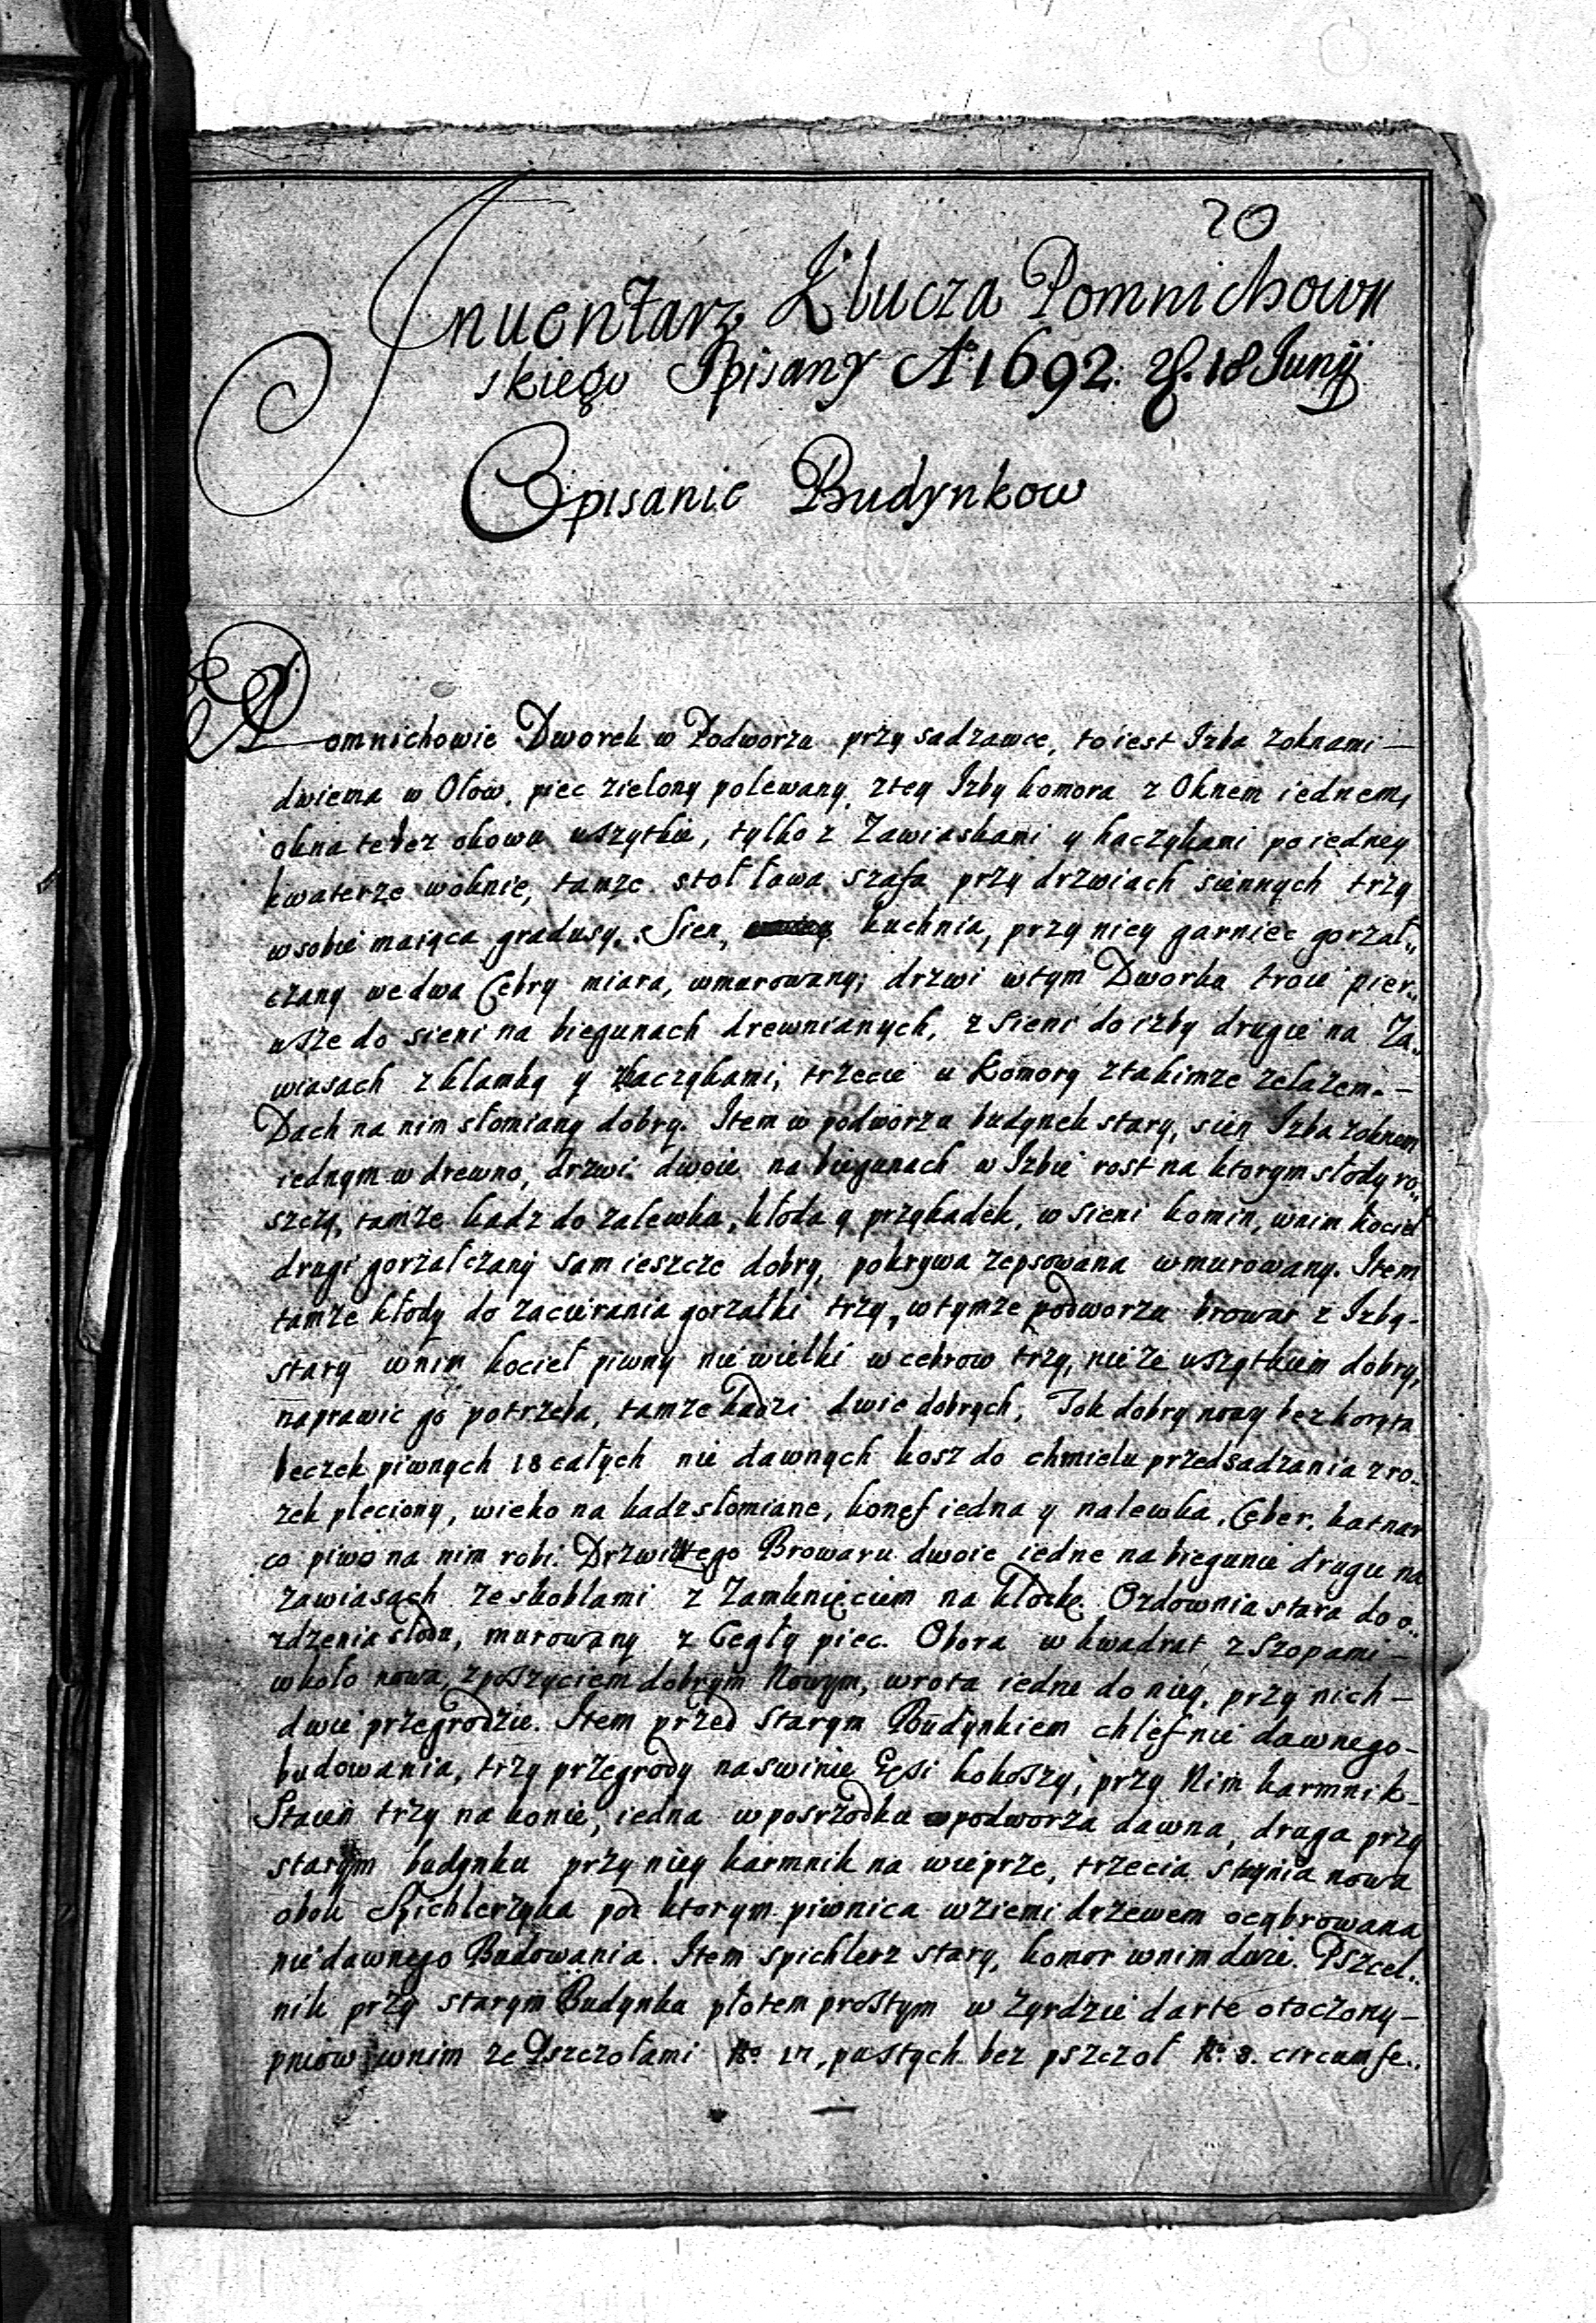 20
Inuentarz Klucza Pomnichow
skiego Spisany Aº 1692. d. 18 Junij
Opisanie Budynkow
Pomnichowie Dworek w Podworzu przy sadzawce, to iest Izba z oknami
dwiema w Ołow, piec zielony polewany, z tey Izby komora z Oknem iednem,
okna te bez okowu wszytkie, tylko z Zawiaskami y haczykami po iedney
kwaterze w oknie, tamze stoł ława szafa przy drzwiach siennych trzy
w sobie maiąca gradusy. Sien, kuchnia, przy niey garniec gorzał„
czany we dwa Cebry miara, wmurowany; drzwi w tym Dworku troie pier„
wsze do sieni na biegunach drewnianych, z sieni do izby drugie na Za„
wiasach z klamką y haczykami, trzecie u Komory z takimze zelazem. —
Dach na nim słomiany dobry. Item w podworzu budynek stary, sień Izba z oknem
iednym w drewno, drzwi dwoie na biegunach w Izbie rost na ktorym słody ro„
szczą, tamze kadz do zalewku, kłoda y przykadek, w sieni komin, w nim kocieł
drugi gorzałczany sam ieszcze dobry, pokrywa zepsowana wmurowany. Item
tamze kłody do zacierania gorzałki trzy, w tymze podworzu browar z Izbą
stary w nim kocieł piwny nie wielki w cebrow trzy, nie ze wszytkiem dobry,
naprawic go potrzeba, tamze kadzi dwie dobrych, Tok dobry nowy bez koryta
beczek piwnych 18 całych nie dawnych kosz do chmielu przedsadzania z ro„
zek pleciony, wieko na kadz słomiane, konef iedna y nalewka, Ceber,
co piwo na nim robi. Drzwi u tego Browaru dwoie iedne na biegunie drugie na
zawiasach ze skoblami z Zamknięciem na kłotkę. Ozdownia stara do o„
zdzenia słodu, murowany z Cegły piec. Obora w kwadrat z szopami —
w koło nowa, z poszyciem dobrym Nowym, wrota iedne do niey, przy nich —
dwie przegrodzie. Item przed starym Budynkiem chlef nie dawnego —
budowania, trzy przegrody na swinie Gęsi kokoszy, przy Nim karmnik
Staien trzy na konie, iedna w posrzodku podworza dawna, druga przy
starym budynku przy niey karmnik na wieprze, trzecia staynia nowa
obok Spichlerzyka pod ktorym piwnica w ziemi drzewem ocębrowana
nie dawnego Budowania. Item spichlerz stary, komor w nim dwie. Pszcel„
nik przy starym Budynku płotem prostym w zyrdzie darte otoczony —
pniow w nim ze Pszczołami Nº 17, pustych bez pszczoł Nº 8. circumfe„